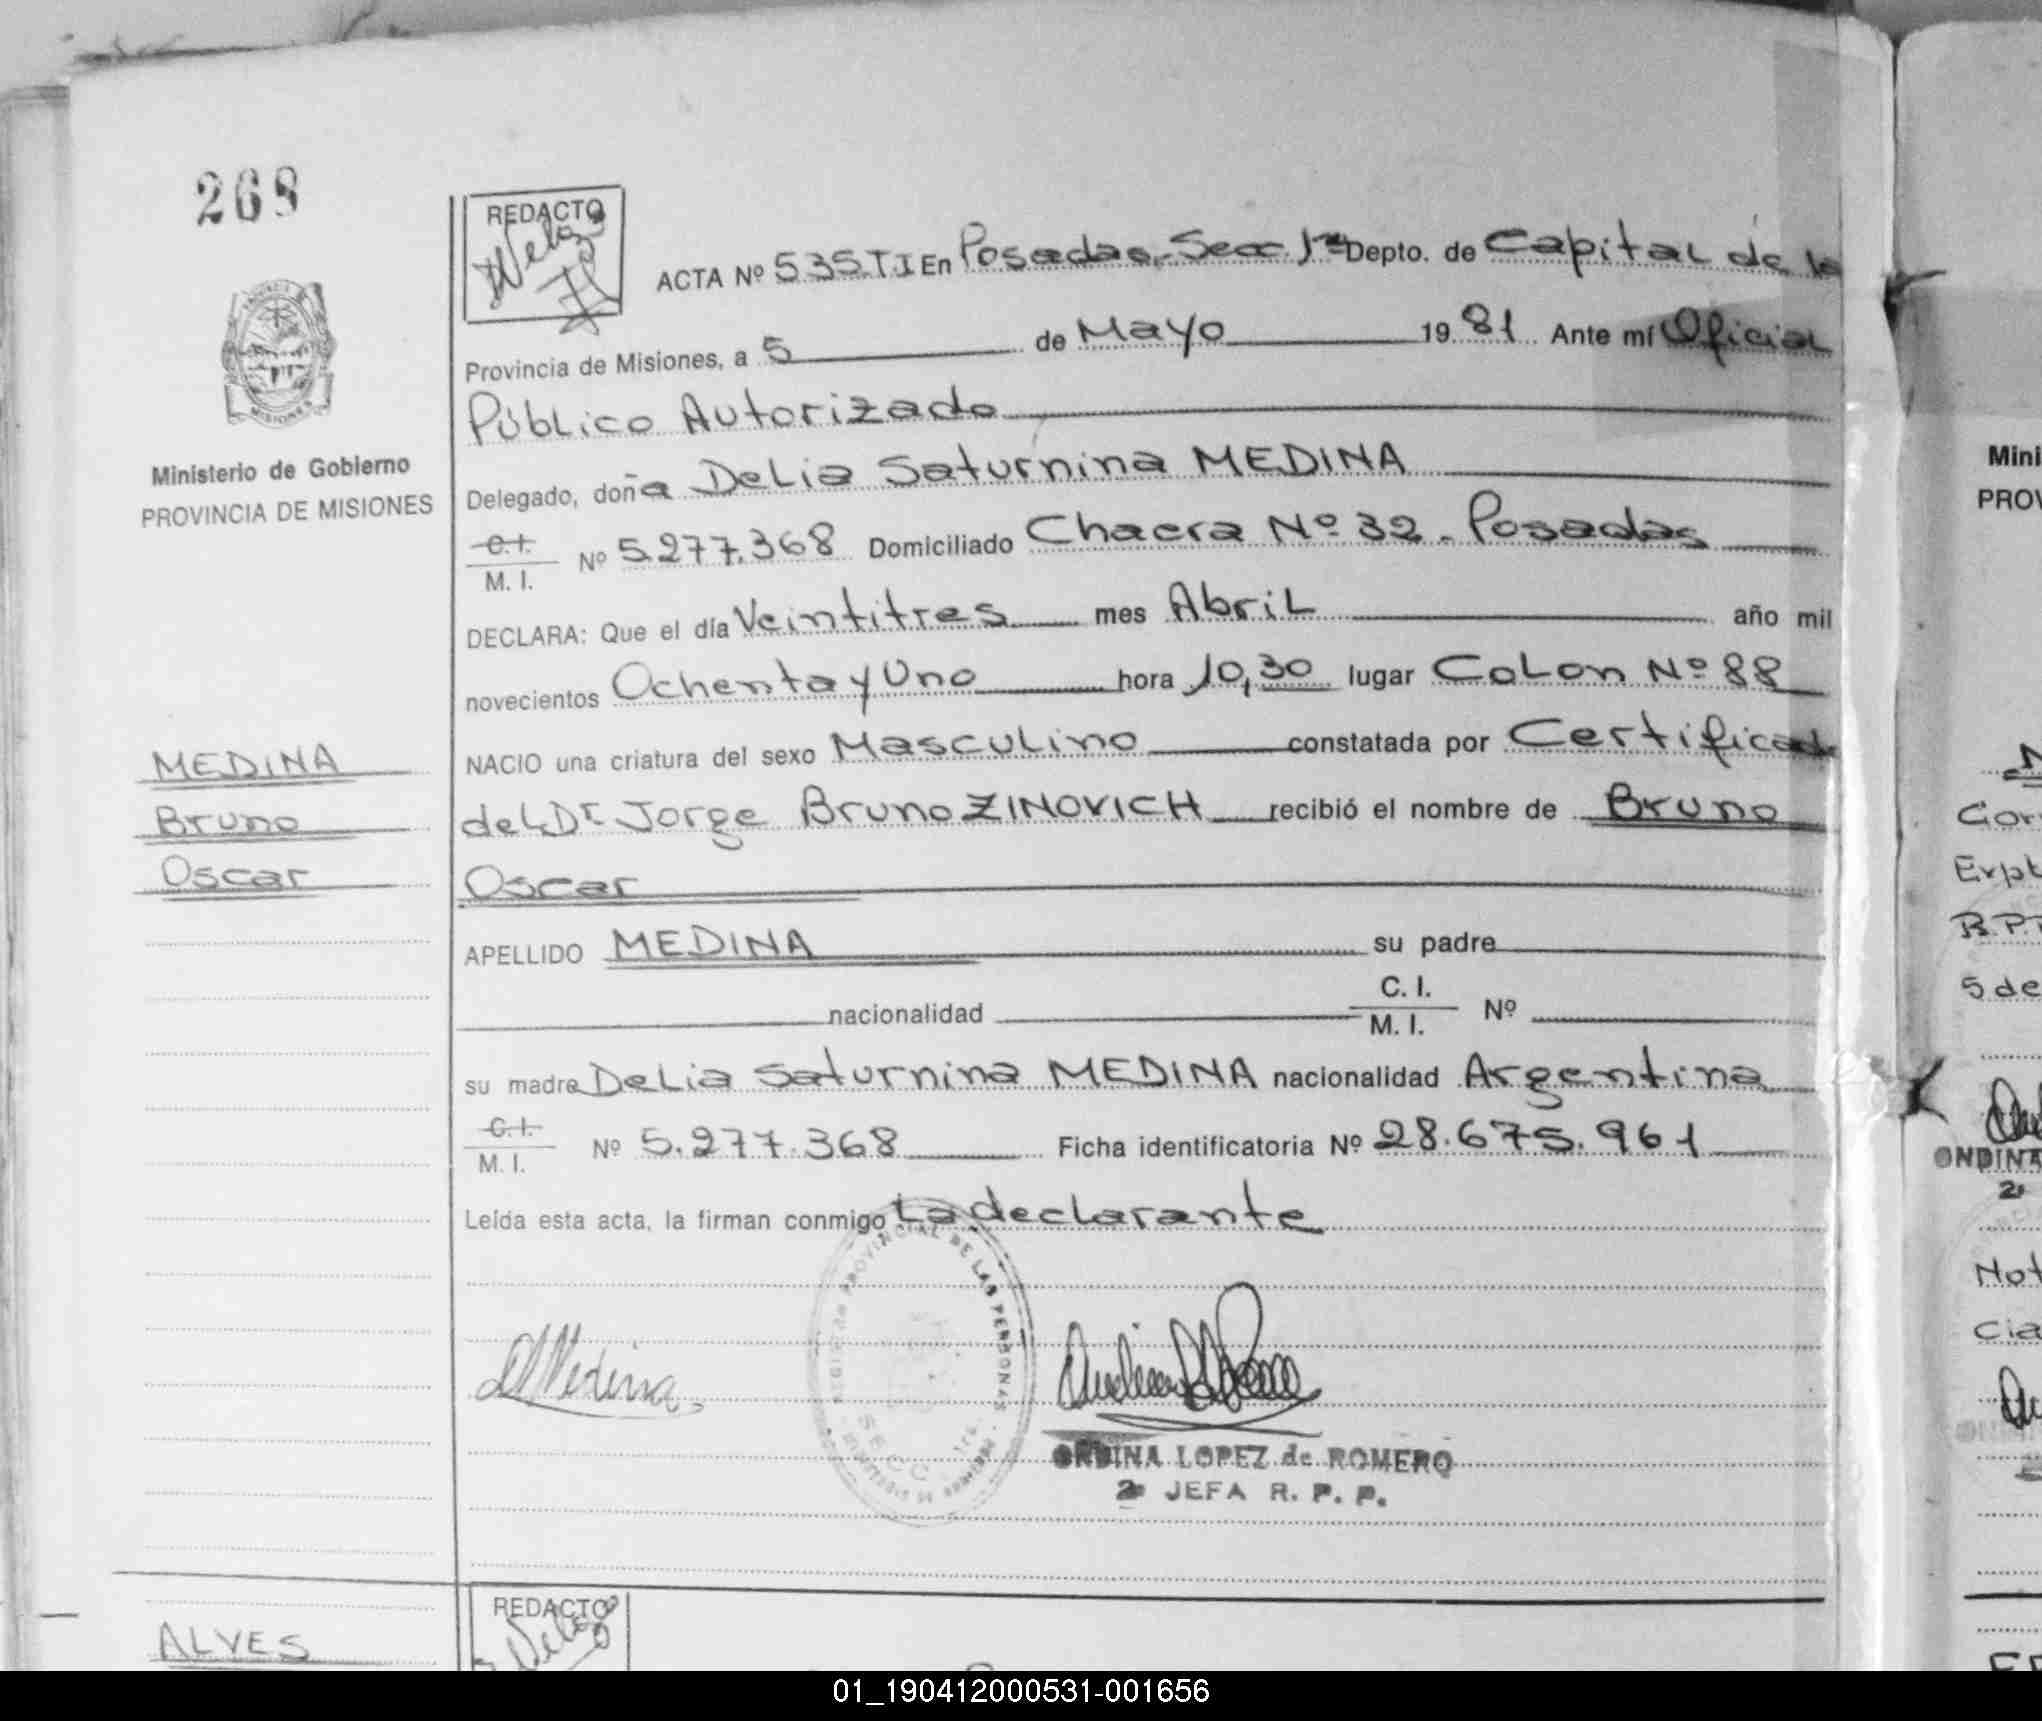 268
REDACTO
ACTA Nº 535.T.I En Posadas. Secc. 1ra Depto. de Capital de la
Provincia de Misiones, a 5 de Mayo 1981 Ante mí Oficial
Público Autorizado
Delegado, doña Delia Saturnina MEDINA
C.I.
M. I. Nº 5.277.368 Domiciliado Chacra Nº 32. Posadas
DECLARA: Que el día Veintitres mes Abril año mil
novecientos Ochenta y Uno hora 10,30 lugar Colon Nº 88
NACIO una criatura del sexo Masculino constatada por Certificado
del Dr Jorge Bruno ZINOVICH recibió el nombre de Bruno
Oscar
APELLIDO MEDINA su padre
nacionalidad C. I.
M. I. Nº
su madre Delia Saturnina MEDINA nacionalidad Argentina
C.I.
M. I. Nº 5.277.368 Ficha identificatoria Nº 28.675.961
Leída esta acta, la firman conmigo La declarante
Medina
ONDINA LOPEZ de ROMERO
2 JEFA R. P. P.
PROVINCIAL DE LAS PERSONAS
SECC. 1ra.
PROVINCIA
MISIONES
Ministerio de Gobierno
PROVINCIA DE MISIONES
MEDINA
Bruno
Oscar
REDACTO
ALVES
Mini
PROV
Gor
Expt
R.P.
5 de
ONDINA
2
Not
Cia
01_190412000531-001656